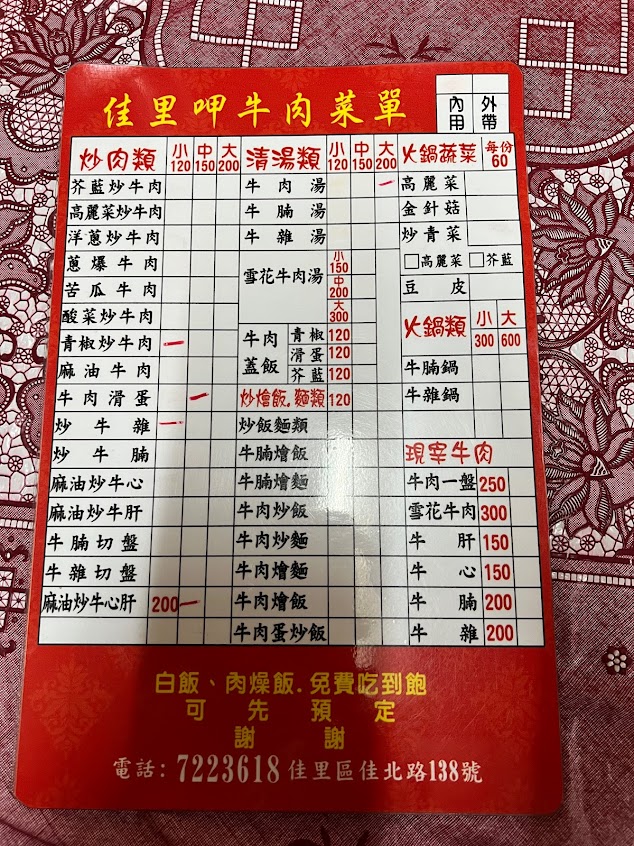 佳里呷牛肉菜單
內用 外帶
炒肉類 小120 中150 大200
芥藍炒牛肉
高麗菜炒牛肉
洋蔥炒牛肉
蔥爆牛肉
苦瓜牛肉
酸菜炒牛肉
青椒炒牛肉
麻油牛肉
牛肉滑蛋
炒牛雜
炒牛腩
麻油炒牛心
麻油炒牛肝
牛腩切盤
牛雜切盤
麻油炒牛心肝 200
清湯類 小120 中150 大200
牛肉湯
牛腩湯
牛雜湯
雪花牛肉湯 小150 中200 大300
牛肉蓋飯 青椒 120
滑蛋 120
芥藍 120
炒燴飯.麵類 120
炒飯麵類
牛腩燴飯
牛腩燴麵
牛肉炒飯
牛肉炒麵
牛肉燴麵
牛肉燴飯
牛肉蛋炒飯
火鍋蔬菜 每份60
高麗菜
金針菇
炒青菜
□高麗菜 □芥藍
豆皮
火鍋類 小300 大600
牛腩鍋
牛雜鍋
現宰牛肉
牛肉一盤 250
雪花牛肉 300
牛肝 150
牛心 150
牛腩 200
牛雜 200
白飯、肉燥飯.免費吃到飽
可先預定
謝謝
電話:7223618 佳里區佳北路138號